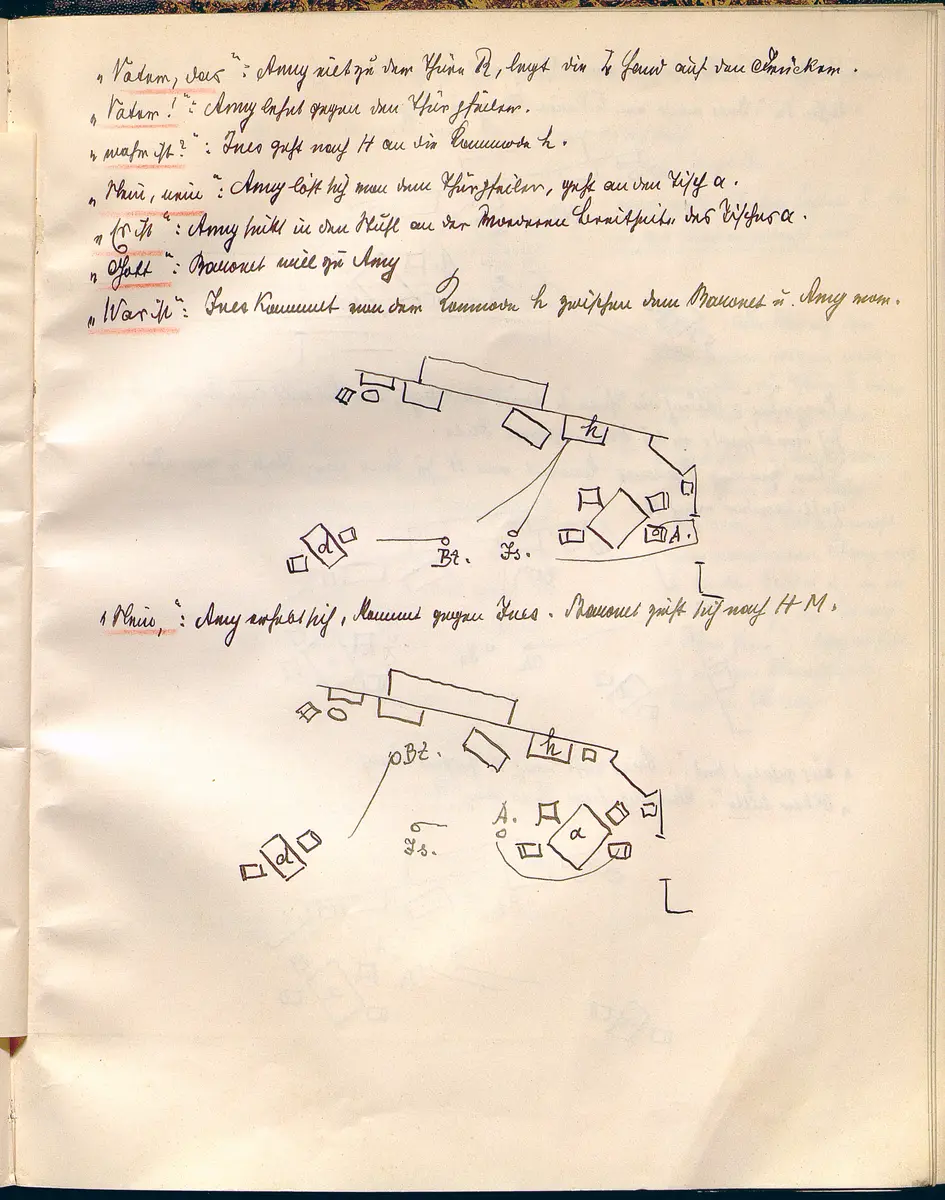 „Vater, das“: Amy eilt zu der Thüre R, legt die L Hand auf den Drücker.
„Vater!“: Amy lehnt gegen den Thürpfeiler.
„wahr ist?“: Ines geht nach H an die Kommode h.
„Nein, nein“: Amy löst sich von dem Thürpfeiler, geht an den Tisch a.
„Es ist“: Amy sinkt in den Stuhl an der vorderen Breitseite des Tisches a.
„Gott“: Baronet will zu Amy
„War ich“: Ines kommt von der Kommode h zwischen dem Baronet u. Amy vor.
h
d
Bt.
Is.
A.
„Nein,“: Amy erhebt sich, kommt gegen Ines. Baronet zieht sich nach H M.
Bt.
h
A.
a
d
Is.